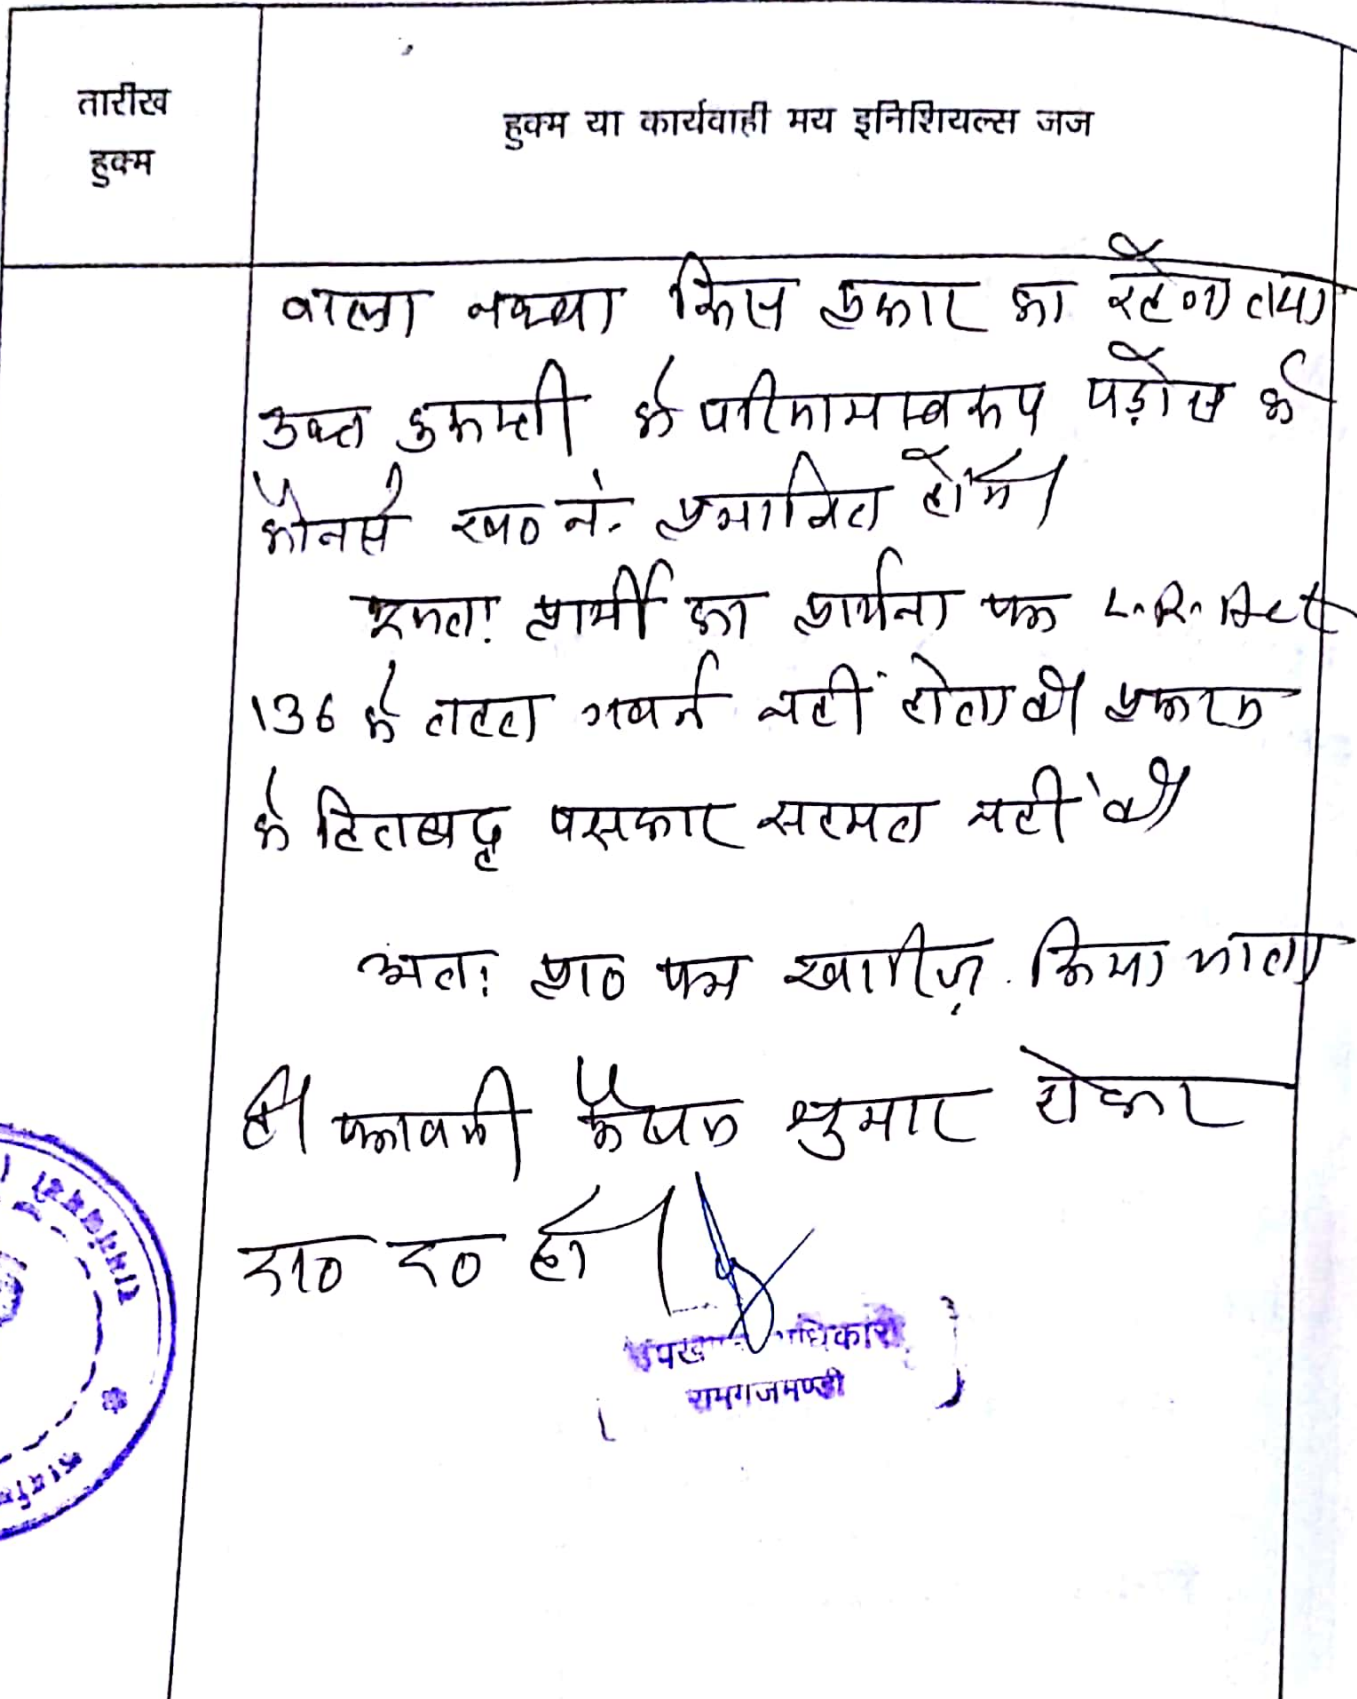 तारीख
हुक्म
हुक्म या कार्यवाही मय इनिशियल्स जज
वाला नक्शा किस प्रकार का रहेगा तथा
उक्त दुरूस्ती के परिणामस्वरूप पड़ोस के
कौनसे ख० नं. प्रभावित होंगे।
अतः प्रार्थी का प्रार्थना पत्र L.R. Act
136 के तहत गवर्न नहीं होता है। प्रकरण
के हितबद्ध पक्षकार सहमत नहीं है।
अतः प्रा० पत्र खारिज़ किया जाता
है। पत्रावली फैसल शुमार होकर
दा० द० हो।
उपख अधिकारी
रामगंजमण्डी